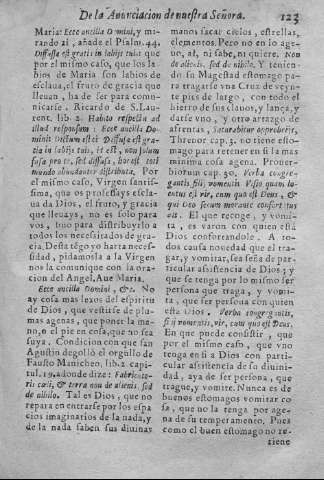 De la Anunciacion de nuestra Señora. 123
Maria: Ecce ancilla Domini, y mi-
rando al, añade el Psalm. 44.
Diffussa est gratia in labijs tuis: que
por el mismo caso, que los la-
bios de Maria son labios de
esclaua, el fruto de gracia que
lleuan, ha de ser para comu-
nicarse. Ricardo de S. Lau-
rent. lib. 2. Habito respectu ad
illud responsum: Ecce ancilla Do-
mini: dictum est ei: Diffusa est gra-
tia in labijs tuis, id est, non solum
fusa pro te, sed diffusa, hoc est toti
mundo abundanter distributa. Por
el mismo caso, Virgen santis-
sima, que os professays escla-
ua de Dios, el fruto, y gracia
que lleuays, no es solo para
vos, sino para distribuyrlo a
todos los necessitados de gra-
cia. Desta tẽgo yo harta neces-
sidad, pidamosla a la Virgen
nos la comunique con la ora-
cion del Angel, Aue Maria.
Ecce ancilla Domini, &c. No
ay cosa mas lexos del espiritu
de Dios, que vestirse de plu-
mas agenas, que poner la ma-
no, o el pie en cosa, que no sea
suya. Condicion con que san
Agustin degollò el orgullo de
Fausto Manicheo, lib. 2. capi-
tul. 19. adonde dize: Fabricato-
ris cæli, & terra non de alienis, sed
de nihilo. Tal es Dios, que no
repara en entrarse por los espa-
cios imaginarios de la nada, y
de la nada saben sus diuinas
manos sacar cielos, estrellas,
elementos. Pero no en lo age-
no, ahi, ni sabe, ni quiere. Non
de alienis, sed de nihilo. Y tenien-
do su Magestad estomago pa-
ra tragarse vna Cruz de veyn-
te pies de largo, con todo el
hierro de sus clauos, y lança, y
darse vno, y otro artazgo de
afrentas, Saturabitur opprobrijs,
Threnor cap. 3. no tiene esto-
mago para retener en si la mas
minima cosa agena. Prouer-
biorum cap. 30. Verba congre-
gantis, filij vomentis. Visio quam lo-
cutus est vir, cum quo est Deus, &
qui Deo secum morante confortatus
est. El que recoge, y vomi-
ta, es varon con quien está
Dios conforrandole. A to-
dos causa nouedad que el tra-
gar, y vomitar, sea seña de par-
ticular assistencia de Dios; y
que se tenga por lo mismo ser
persona que traga, y vomi-
ta, que ser persona con quien
está Dios. Verba congregantis,
filij vomentis, vir, cum quo est Deus.
En que puede consistir, que
por el mismo caso, que vno
tenga en si a Dios con parti-
cular assistencia de su diuini-
dad, aya de ser persona, que
trague, y vomite. Nunca es de
buenos estomagos vomitar co
sa, que no la tenga por age-
na de su temperamento. Pues
como el buen estomago no re-
tiene